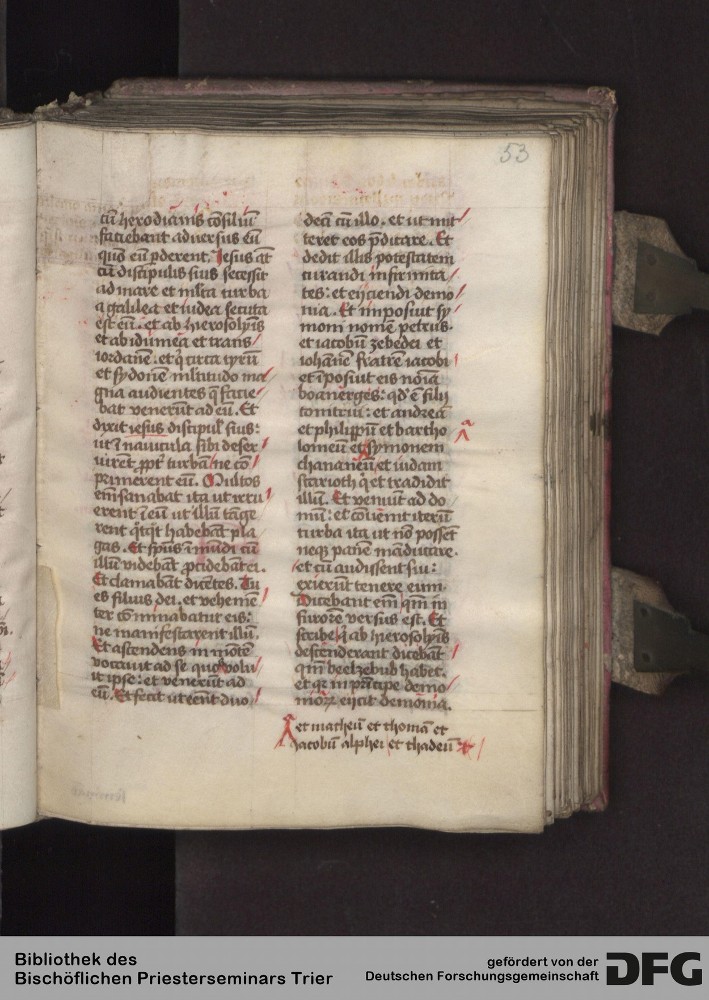 53
cū herodianis cōsiliū
faciebant adversus eū
quō eū ꝑderent. Iesus aūt
cū discipulis suis secessit
ad mare et mlta turba
a galilea et iudea secuta
est eū. et ab hierosolymis
et ab idumea et trans/
iordanē. et q̄ circa tyrū
et sydonē mltitudo ma/
gna audientes q̄ facie/
bat venerūt ad eū. Et
dixit iesus discipul' suis:
ut ī navicula sibi deser/
viret ppt' turbā ne cō/
primerent eū. Multos
em̄ sanabat ita ut irru/
erent ī eū ut illū tāge/
rent q̄tq̄t habebāt pla/
gas. Et spūs īmūdi cū
illū videbāt ꝓcidebāt ei.
Et clamabāt dicētes. Tu
es filius dei. et vehemē/
ter cōminabatur eis:
ne manifestarent illū.
Et ascendens in mōtē
vocavit ad se quos volu/
it ipse: et venerūt ad
eū. Et fecit ut eēnt duo/
deci cū illo. et ut mit/
teret eos p̄dicare. Et
dedit illis potestatem
curandi infirmita/
tes: et eijciendi demo/
nia. Et imposuit sy/
moni nomē petrus.
et iacobū zebedei et
iohānē fratrē iacobi/
et īposuit eis nōīa
boanerges: qd' ē filij
tonitrui: et andreā
et philippū et bartho
lomeū et symonem
chananeū et iudam
scarioth q̄ et tradidit
illū. Et veniūt ad do/
mū: et cōvenit iterū
turba ita ut nō possēt
neq; panē māducare.
et cū audissent sui:
exierūt tenere eum.
Dicebant em̄ qm̄ in
furorē versus est. Et
scribe q̄ ab hierosolymis
descenderant dicebāt/
qm̄ beelzebub habet.
et qꝛ in prīcipe demo/
nioꝝ eijcit demonia.
et matheū et thomā et
iacobū alphei et thadeū
Bibliothek des
Bischöflichen Priesterseminars Trier
gefördert von der
Deutschen Forschungsgemeinschaft
DFG